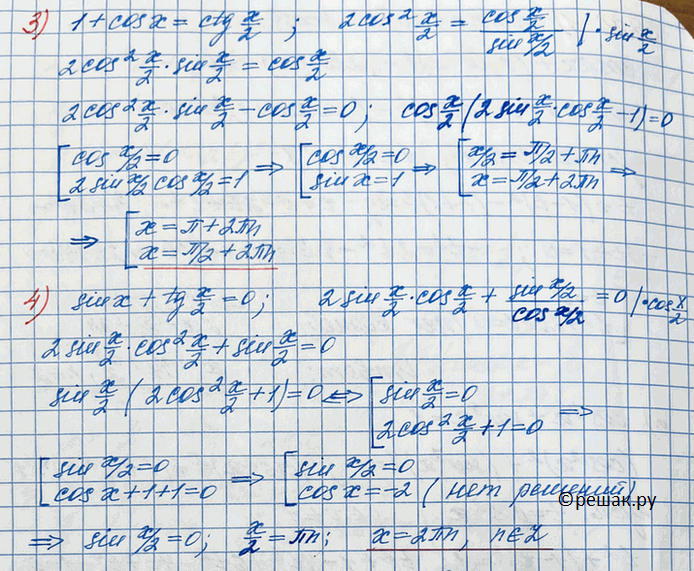 3) 1 + cos x = ctg x/2 ; 2cos² x/2 = cos x/2 / sin x/2 | · sin x/2
2cos² x/2 · sin x/2 = cos x/2
2cos² x/2 · sin x/2 - cos x/2 = 0 ; cos x/2 (2 sin x/2 · cos x/2 - 1) = 0
[ cos x/2 = 0 ⇒ [ cos x/2 = 0 ⇒ [ x/2 = π/2 + πn ⇒
2 sin x/2 cos x/2 = 1 sin x = 1 x = π/2 + 2πn
⇒ [ x = π + 2πn
x = π/2 + 2πn
4) sin x + tg x/2 = 0 ; 2 sin x/2 · cos x/2 + sin x/2 / cos x/2 = 0 | · cos x/2
2 sin x/2 · cos² x/2 + sin x/2 = 0
sin x/2 ( 2cos² x/2 + 1) = 0 ⇔ [ sin x/2 = 0 ⇒
2cos² x/2 + 1 = 0
[ sin x/2 = 0 ⇒ [ sin x/2 = 0
cos x + 1 + 1 = 0 cos x = -2 ( нет решений)
©решак.ру
⇒ sin x/2 = 0 ; x/2 = πn ; x = 2πn, n ∈ Z